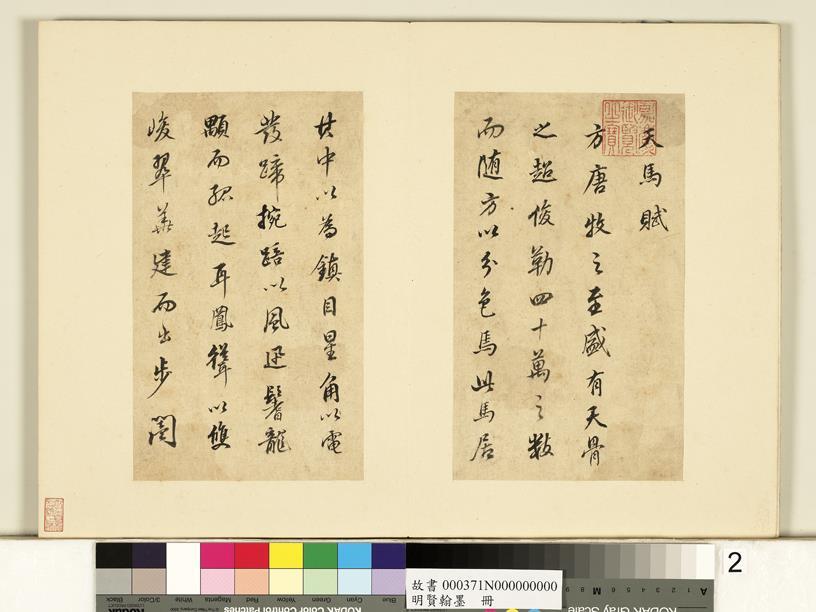 嘉慶御覽之寶
天馬賦
方唐牧之至盛有天骨
之超俊勒四十萬之數
而随方以分色焉此馬居
其中以為鎮目星角以電
發蹄椀踣以風迅鬐龍
顒而孤起耳鳳聳以雙
峻翠華建而出步閶
2
Blue Cyan Green Yellow Red Magenta White 3/Color Black
KODAK Color Control Patches
Kodak
故書 000371N000000000
明賢翰墨 冊
A 1 2 3 4 5 6 M 8 9
KODAK Gray Scale